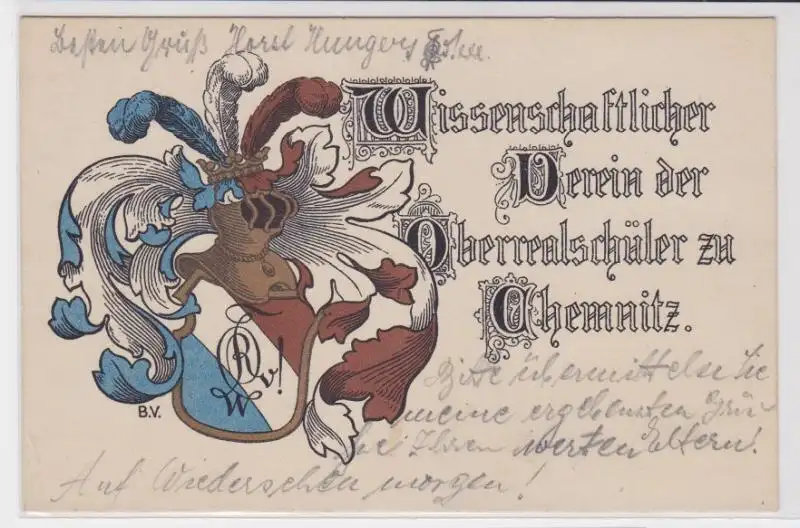 Besten Gruß Horst Hunger
Wissenschaftlicher
Verein der
Oberrealschüler zu
Chemnitz.
B.V.
Bitte übermitteln Sie
meine ergebensten Grü-
ße Ihren werten Eltern!
Auf Wiedersehen morgen!